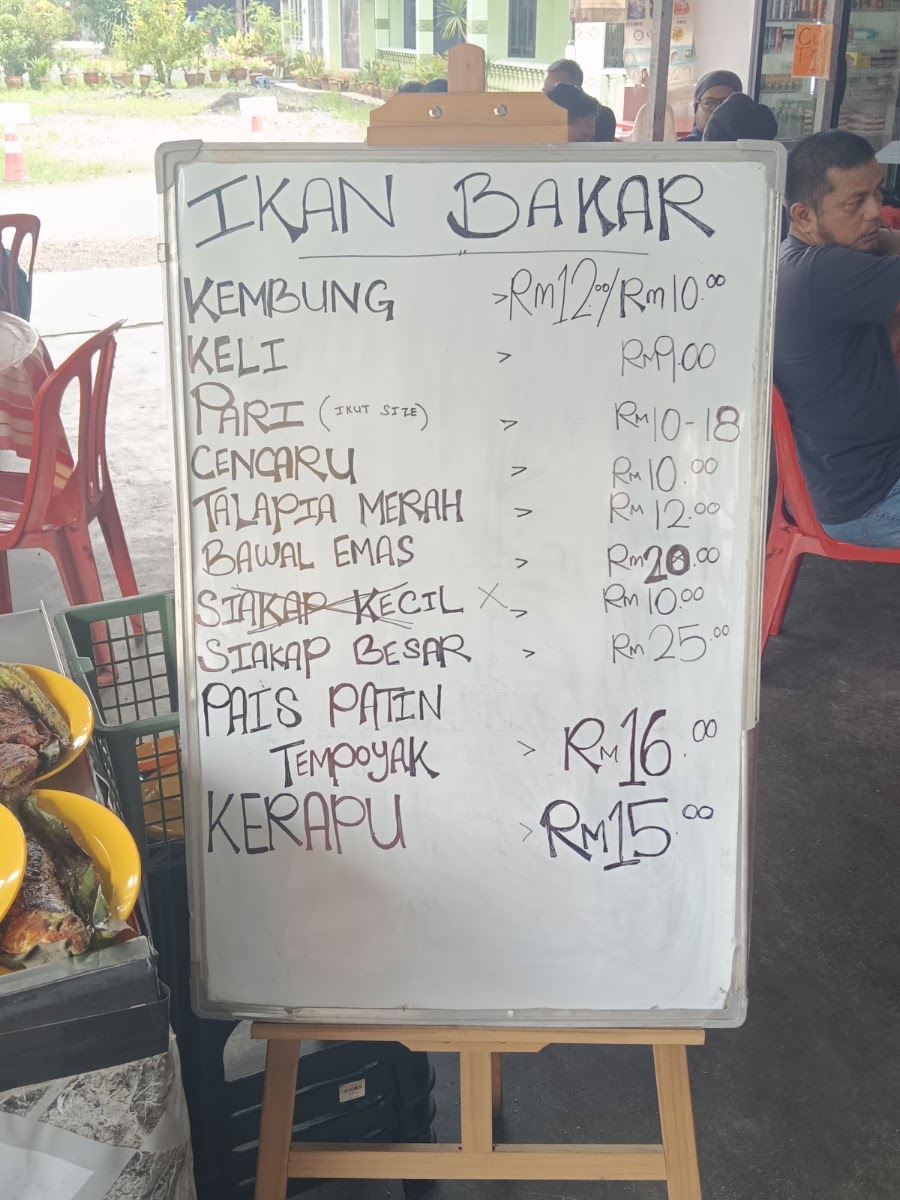 IKAN BAKAR
KEMBUNG > RM12.00/RM10.00
KELI > RM9.00
PARI (IKUT SIZE) > RM10-18
CENCARU > RM10.00
TALAPIA MERAH > RM12.00
BAWAL EMAS > RM20.00
SIAKAP KECIL X > RM10.00
SIAKAP BESAR > RM25.00
PAIS PATIN
TEMPOYAK > RM16.00
KERAPU > RM15.00